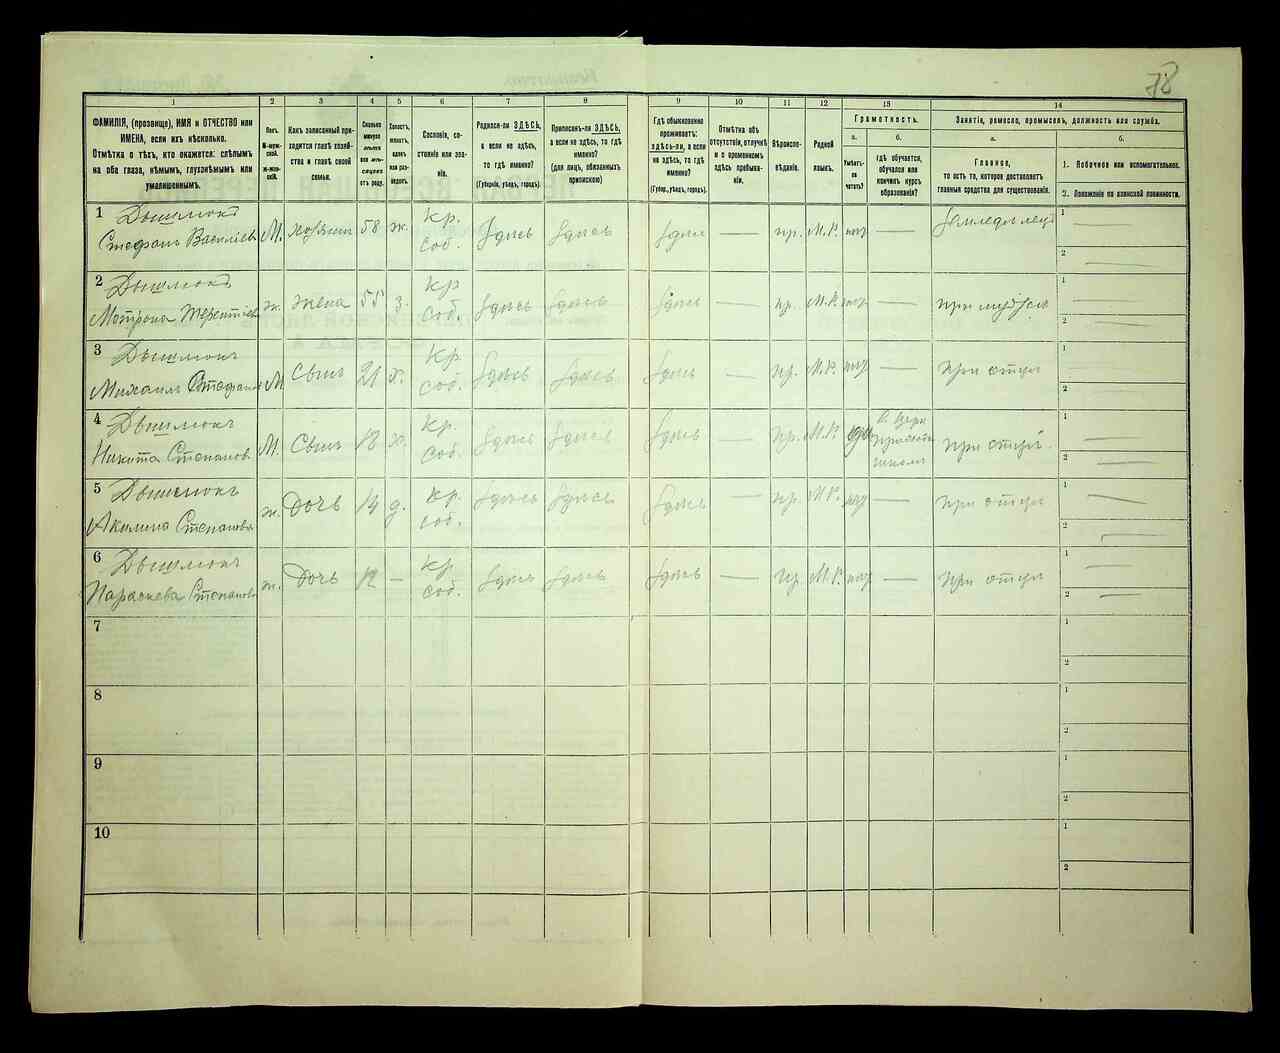 78
1 2 3 4 5 6 7 8 9 10 11 12 13 14
ФАМИЛІЯ, (прозвище), ИМЯ и ОТЧЕСТВО или
ИМЕНА, если ихъ нѣсколько.
Отмѣтка о тѣхъ, кто окажется: слѣпымъ
на оба глаза, нѣмымъ, глухонѣмымъ или
умалишеннымъ.
Полъ.
М-мужской.
Ж-женскій.
Какъ записанный при-
ходится главѣ хозяй-
ства и главѣ своей
семьи.
Сколько
минуло
лѣтъ
или мѣ-
сяцевъ
отъ роду.
Холостъ,
женатъ,
вдовъ
или раз-
веденъ.
Сословіе, со-
стояніе или зва-
ніе.
Родился-ли ЗДѢСЬ,
а если не здѣсь,
то гдѣ именно?
(Губернія, уѣздъ, городъ).
Приписанъ-ли ЗДѢСЬ,
а если не здѣсь, то гдѣ
именно?
(для лицъ, обязанныхъ
припискою)
Гдѣ обыкновенно
проживаетъ:
здѣсь-ли, а если
не здѣсь, то гдѣ
именно?
(Губер., уѣздъ, городъ).
Отмѣтка объ
отсутствіи, отлучкѣ
и о временномъ
здѣсь пребыва-
ніи.
Вѣроиспо-
вѣданіе.
Родной
языкъ.
Грамотность.
а.
Умѣетъ-
ли чи-
тать?
б.
гдѣ обучается,
обучался или
кончилъ курсъ
образованія?
Занятіе, ремесло, промыселъ, должность или служба.
а.
Главное,
то есть то, которое доставляетъ
главныя средства для существованія.
б.
1. Побочное или вспомогательное.
2. Положеніе по воинской повинности.
1 Дышлюкъ
Стефанъ Василіевъ М. хозяин 58 ж. Кр. соб. Здѣсь Здѣсь Здѣсь — пр. М.Р. — 1 —
2 —
2 Дышлюкъ
Мотрона Терентіев ж. жена 55 з. Кр соб. Здѣсь Здѣсь Здѣсь — пр. М.Р. — при мужѣ 1 —
2 —
3 Дышлюкъ
Михаилъ Стефан М Сынъ 21 х. Кр соб. Здѣсь Здѣсь Здѣсь — пр. М.Р. — при отцѣ 1 —
2 —
4 Дышлюкъ
Никита Степанов М. Сынъ 18 х. Кр. соб. Здѣсь Здѣсь Здѣсь — пр. М.Р. школѣ при отцѣ 1 —
2 —
5 Дышлюкъ
Акилина Степанова ж. Дочь 14 д. Кр. соб. Здѣсь Здѣсь Здѣсь — пр. М.Р. — при отцѣ 1 —
2 —
6 Дышлюкъ
Параскева Степанов ж. Дочь 12 — Кр. соб. Здѣсь Здѣсь Здѣсь — пр. М.Р. — при отцѣ 1 —
2 —
7 1
2
8 1
2
9 1
2
10 1
2